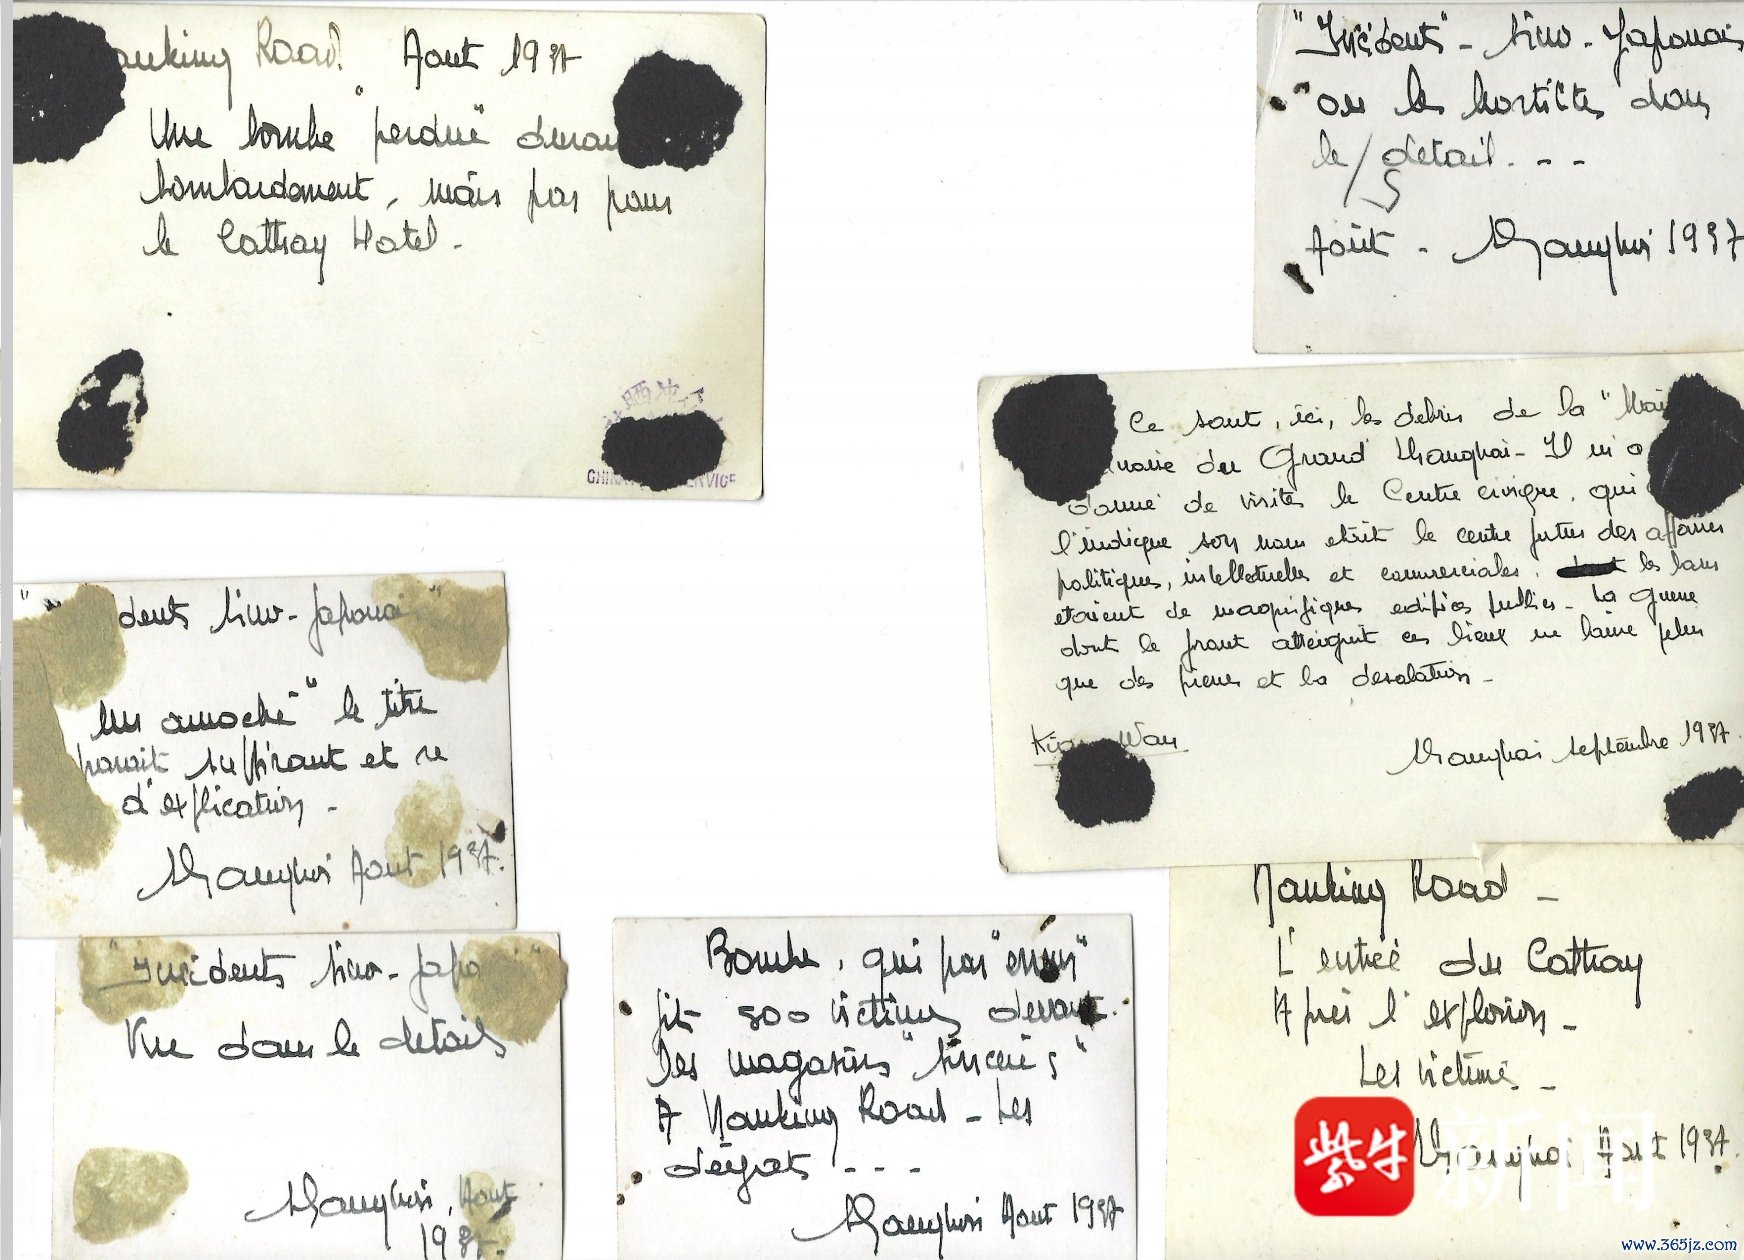 Nanking Road. Août 1937
Une bombe "perdue" devan
bombardement, mais pas pour
le Cathay Hotel.
CHINA ERVICE
"Incidents" - Sino-Japonais
ou les hostilités dans
le détail...
Août - Shanghai 1937
Ce sont, ici, les débris de la "Mai
du Grand Shanghai - Il m'a
donné de visiter le Centre civique, qui
l'indique son nom était le centre futur des affaires
politiques, intellectuelles et commerciales. les lans
étaient de magnifiques édifices publics - La guerre
dont le front atteignit ces lieux ne laisse plus
que des pierres et la désolation -
Kian Wan
Shanghai Septembre 1937.
dents Sino-Japonai "
Un amoché" le titre
parait suffisant et se
d'explication -
Shanghai Aout 1937.
"Incidents Sino-Japo
Vue dans le détails
Shanghai, Aout
1937.
Bombe, qui par "erreur"
fit 800 victimes devant.
Les magasins "Sincere's"
A Nanking Road - Les
dégats - - -
Shanghai Aout 1937
Nanking Road -
L'entrée du Cathay
Après l'explosion -
Les victimes -
Shanghai Aout 1937.
紫牛
新闻
www.365jz.com